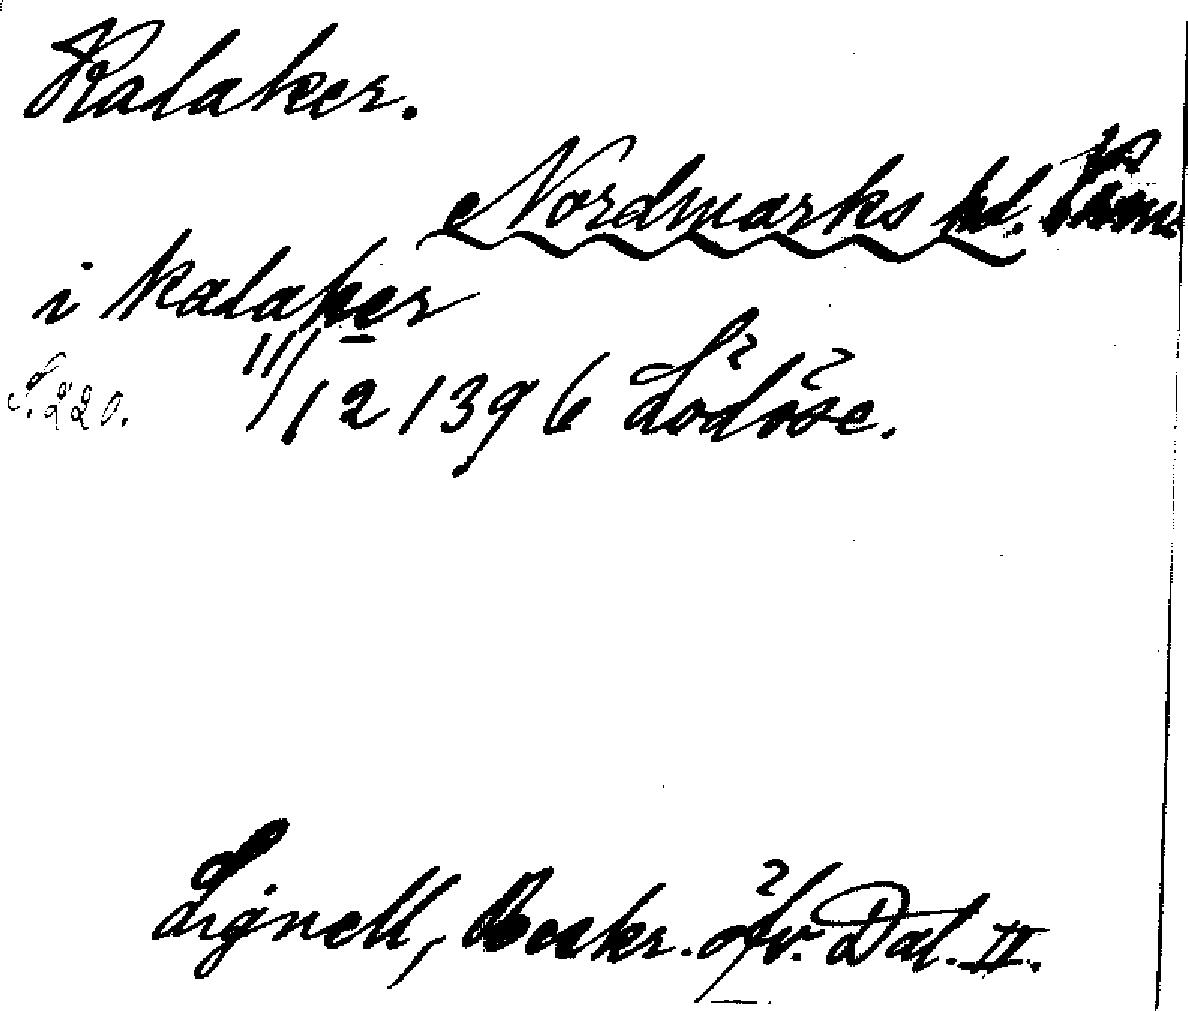 Kalaker.
Nordmarks hd.
i kalaker
S. 220. 11/12 1396 Lödöse.
Lignell, Beskr. öfv. Dal. II.